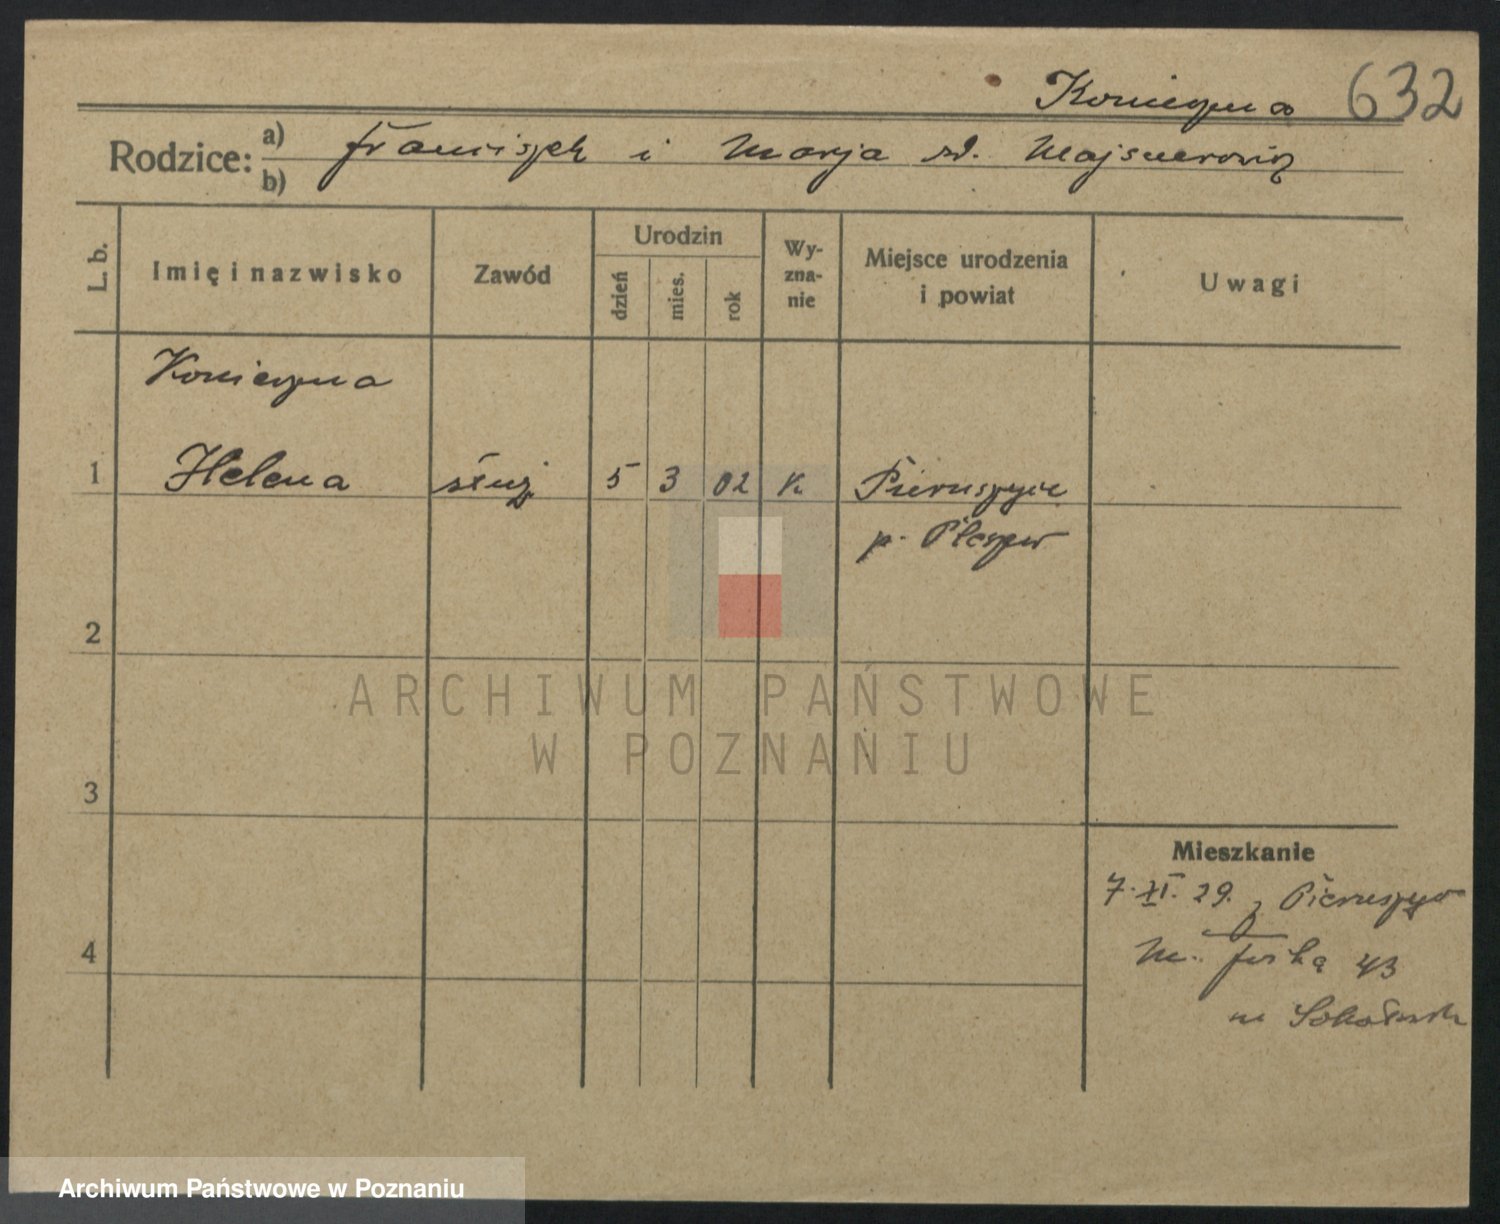 Konieczna 632
Rodzice: a) Franciszek i Marja zd. Majsnerowicz
b)
L. b. Imię i nazwisko Zawód Urodzin dzień mies. rok Wy-zna-nie Miejsce urodzenia i powiat Uwagi
Konieczna
1 Helena służ 5 3 02 K Pieruszyce
p. Pleszew
2
ARCHIWUM PAŃSTWOWE
W POZNANIU
3
Mieszkanie
7. XI. 29. z Pieruszyc
4
43
Archiwum Państwowe w Poznaniu